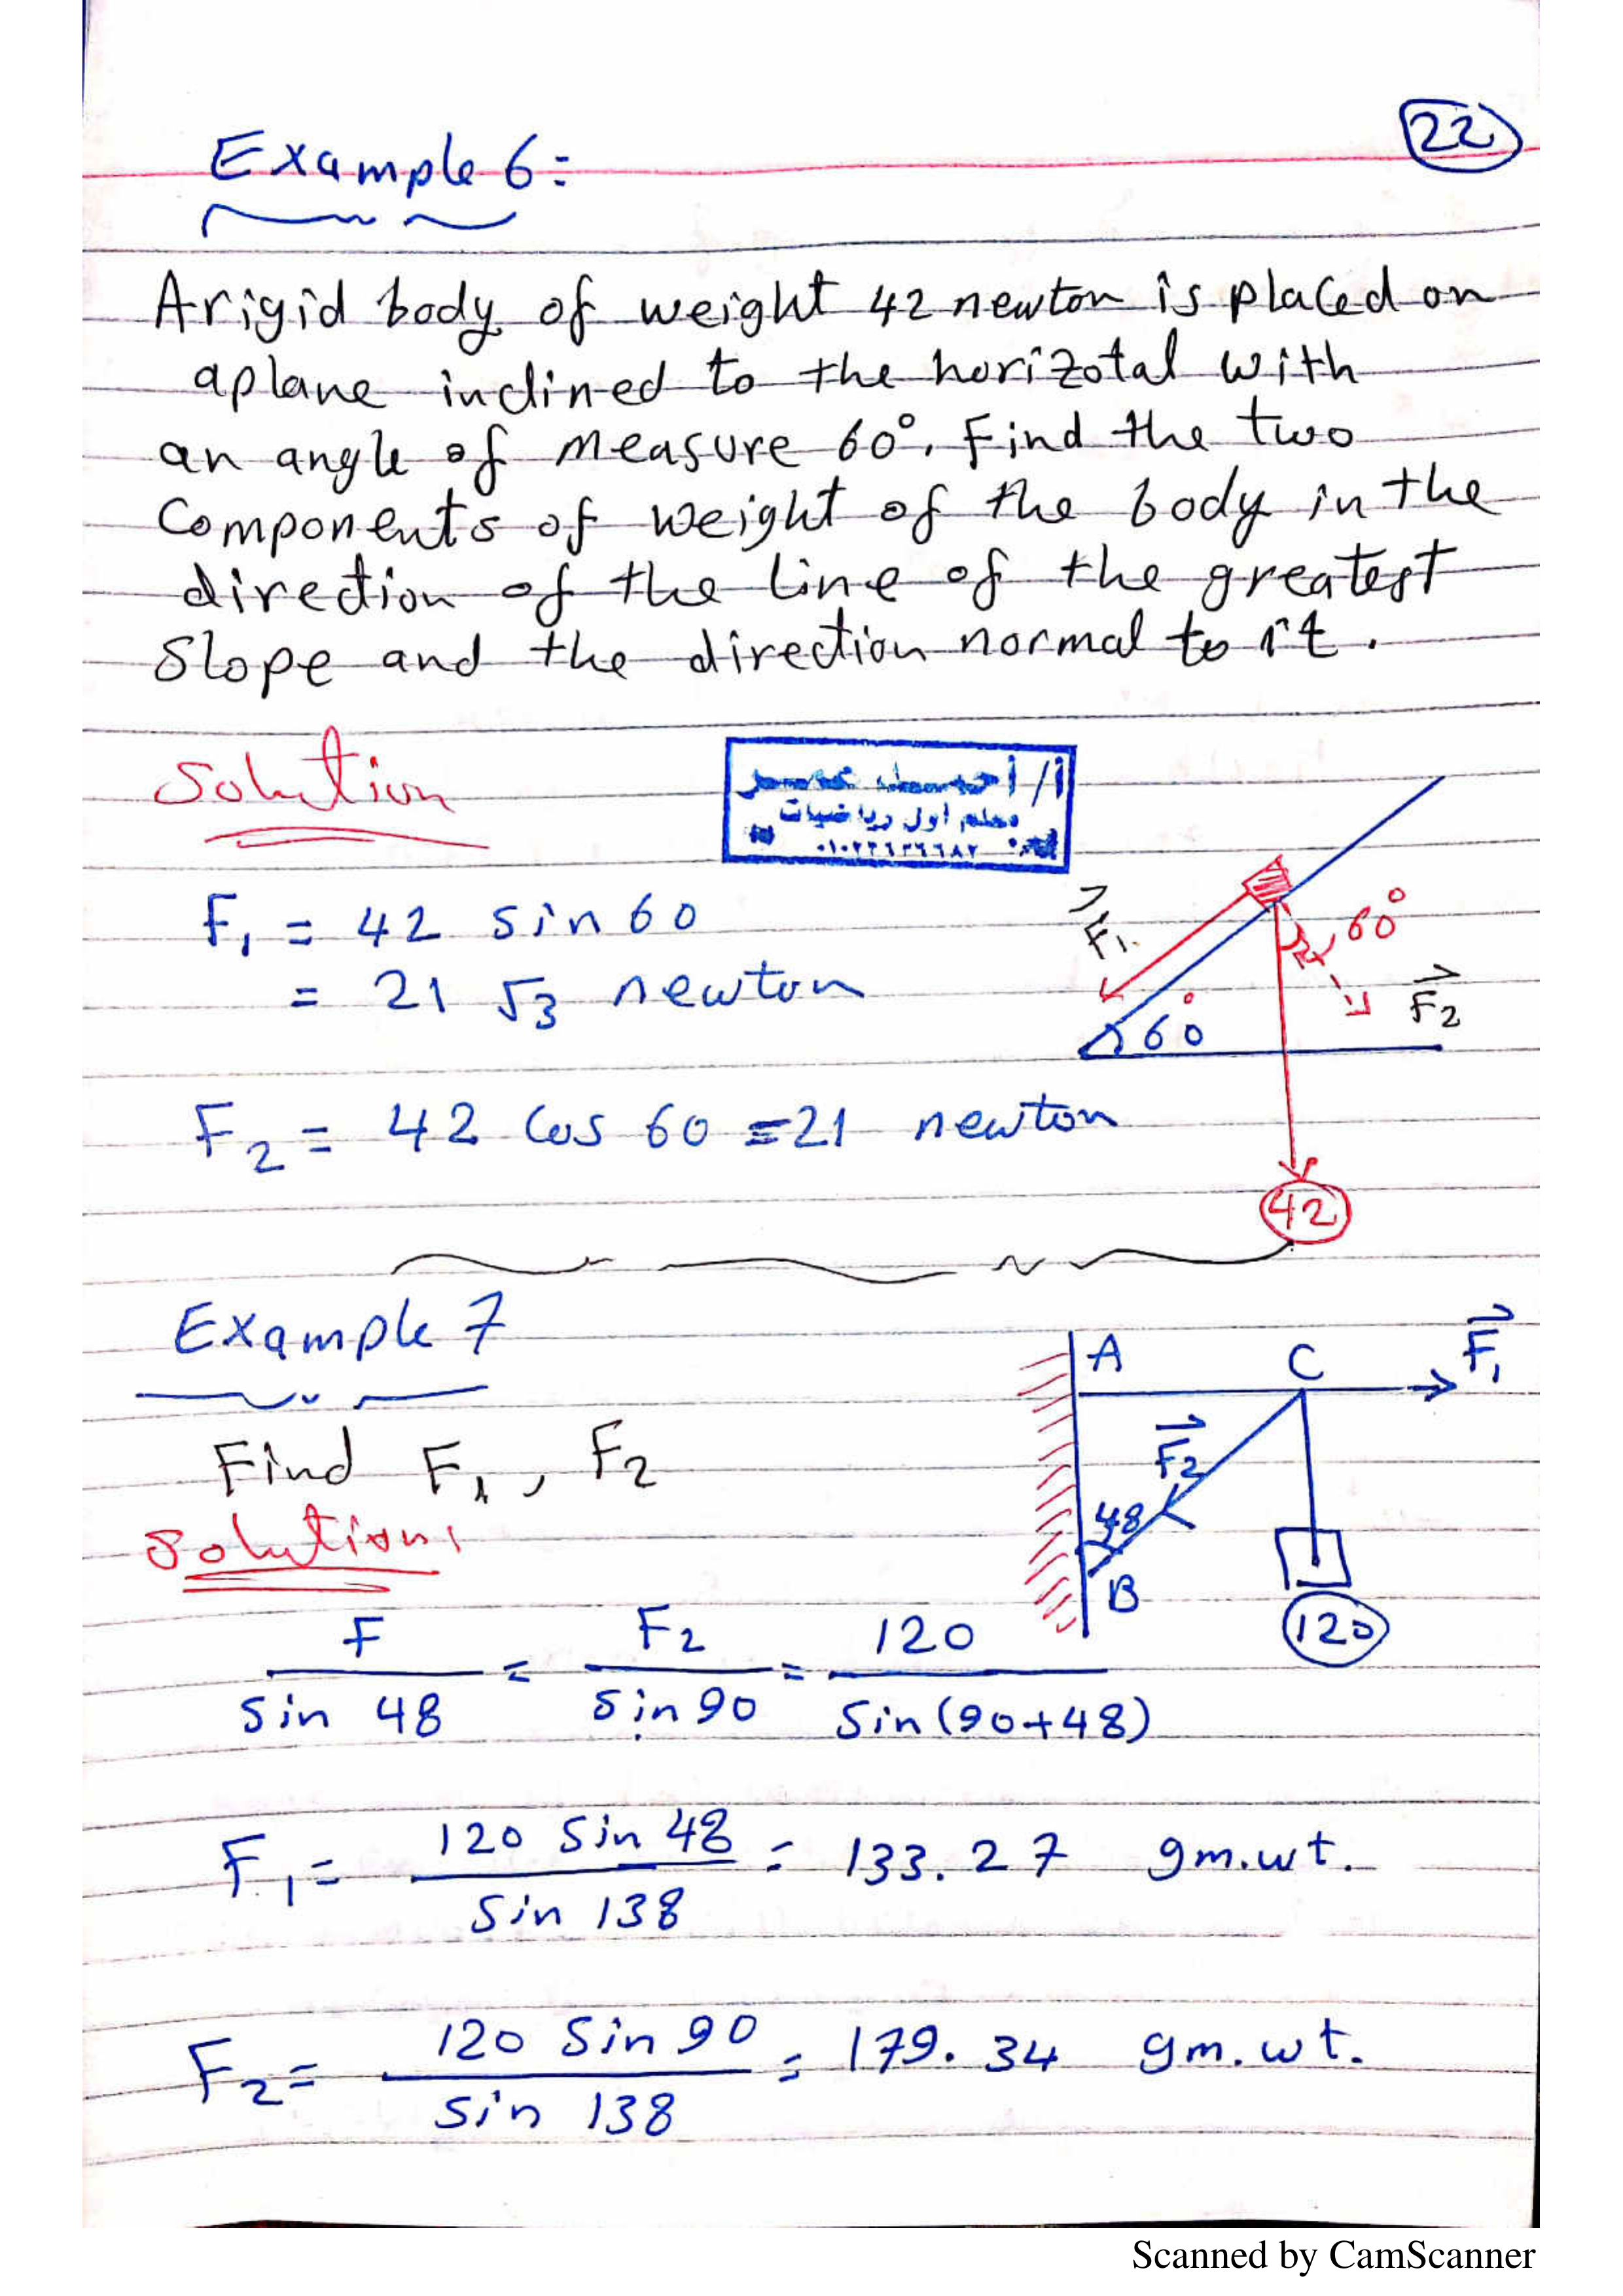 22
Example 6:
A rigid body of weight 42 newton is placed on
a plane inclined to the horizotal with
an angle of measure 60°. Find the two
Components of weight of the body in the
direction of the line of the greatest
Slope and the direction normal to it.
Solution
معلم أول رياضيات
F₁ = 42 sin 60
= 21 √3 newton
F₁
60°
F₂
60°
F₂ = 42 Cos 60 = 21 newton
42
Example 7
A C F₁
Find F₁, F₂
F₂
48
Solution:
B
120
F / sin 48 = F₂ / sin 90 = 120 / Sin(90+48)
F₁ = 120 Sin 48 / Sin 138 = 133.27 gm.wt.
F₂ = 120 Sin 90 / Sin 138 = 179.34 gm.wt.
Scanned by CamScanner